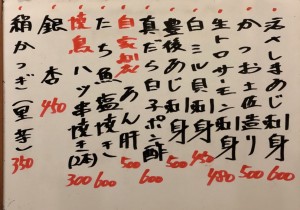 活きしめあじ 600
かつお土佐造り 500
生トロサーモン刺身 480
白ミル貝刺身 450
豊後あじ刺身 500
真だら白子ポン酢 600
自家製あん肝 500
たち魚塩焼き 600
焼鳥ハツ串焼き(2本) 300
銀杏 450
絹かつぎ(里芋) 350